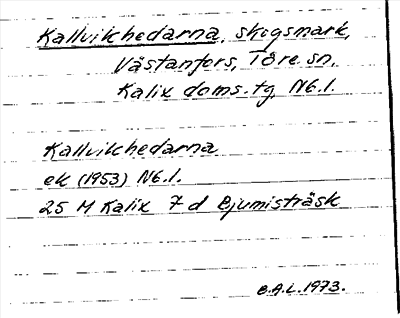 Kallvikhedarna, skogsmark,
Västanfors, Töre sn,
Kalix doms. tg, Nb. l.
Kallvikhedarna
ek (1953) Nb. l.
25 M Kalix 7 d Bjumisträsk
B.A.L. 1973.